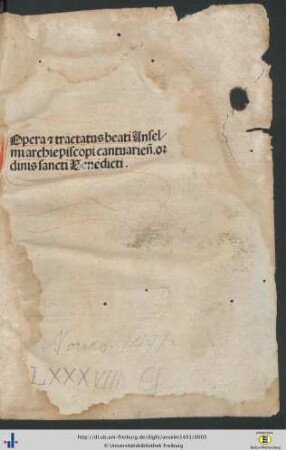 Opera ⁊ tractatus beati Ansel-
mi archiepiscopi cantuarien̄. or
dinis sancti Benedicti.
LXXXVIII
http://dl.ub.uni-freiburg.de/diglit/anselm1491/0005
© Universitätsbibliothek Freiburg